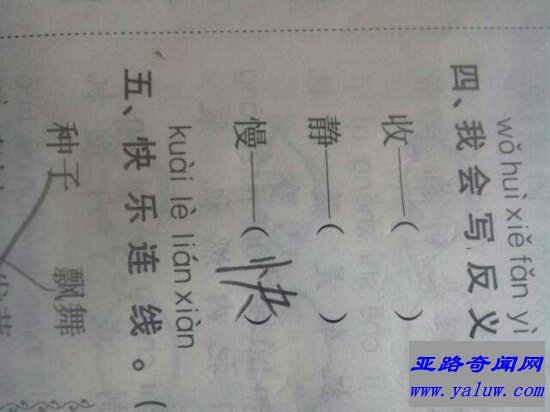 wǒ huì xiě fǎn yì
四、我会写反义
收——(　　)
静——(　　)
慢——(快)
kuài lè lián xiàn
五、快乐连线。(
种子 飘舞
亚路奇闻网
www.yaluw.com